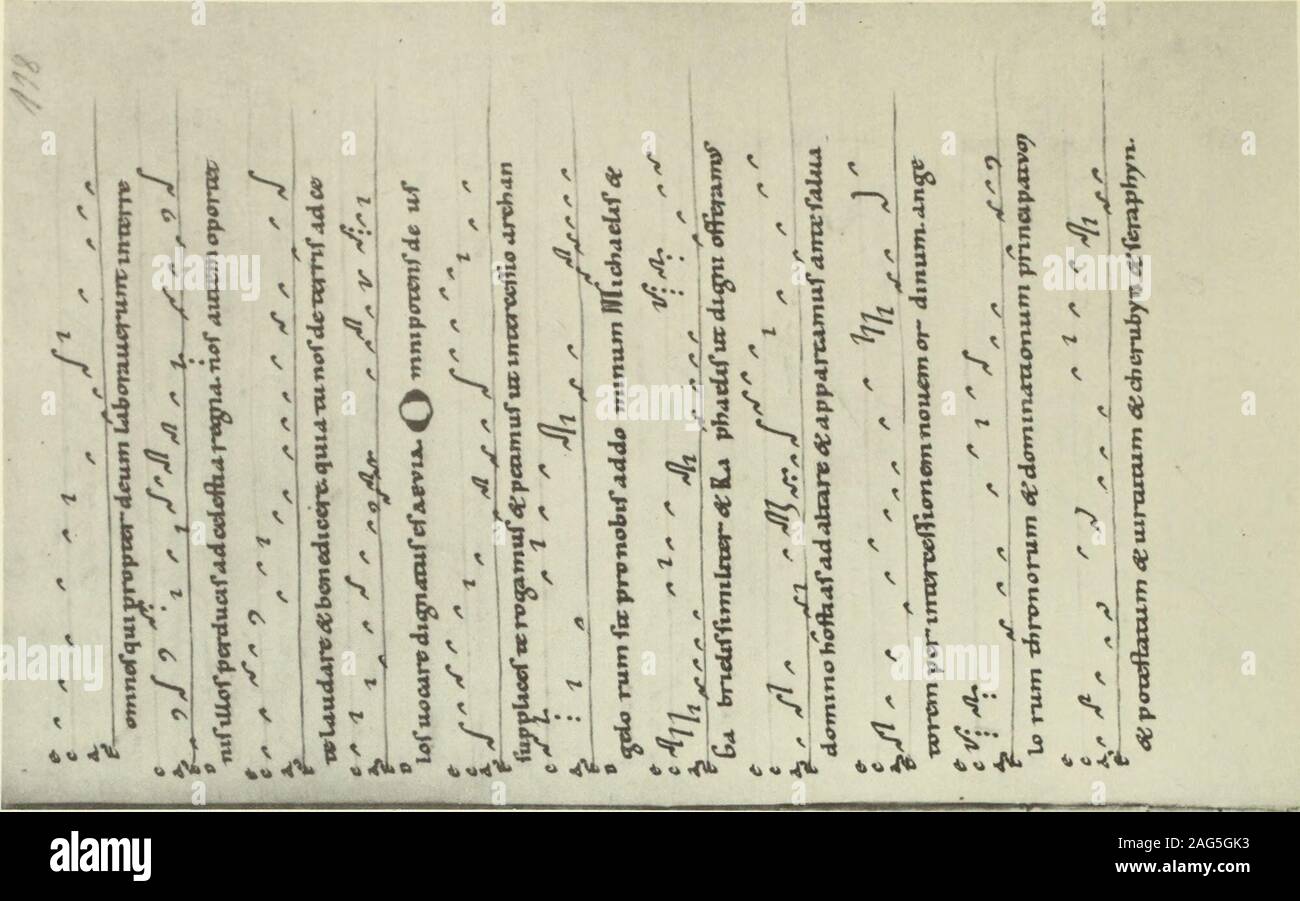 118
omnes qui propter deum laborauerunt in terre
nis illos perducis ad celestia regna. nos autem oporte
te laudare & benedicere quia tu nos de terris ad ce
los uocare dignatus es aevia. Omnipotens de us
supplices te rogamus & petamus ut intercessio archan
gelo rum sit pro nobis ad do minum Michaelis &
Ga brielis similiter & Ra phaelis ut digni offeramus
domino hostias ad altare & appareamus ante salua
torem per intercessionem nouem or dinum. ange
lo rum thronorum & dominationum principatuum
& potestatum & uirtutum & cherubyn & seraphyn.
alamy
Image ID: 2AG5GK3
www.alamy.com